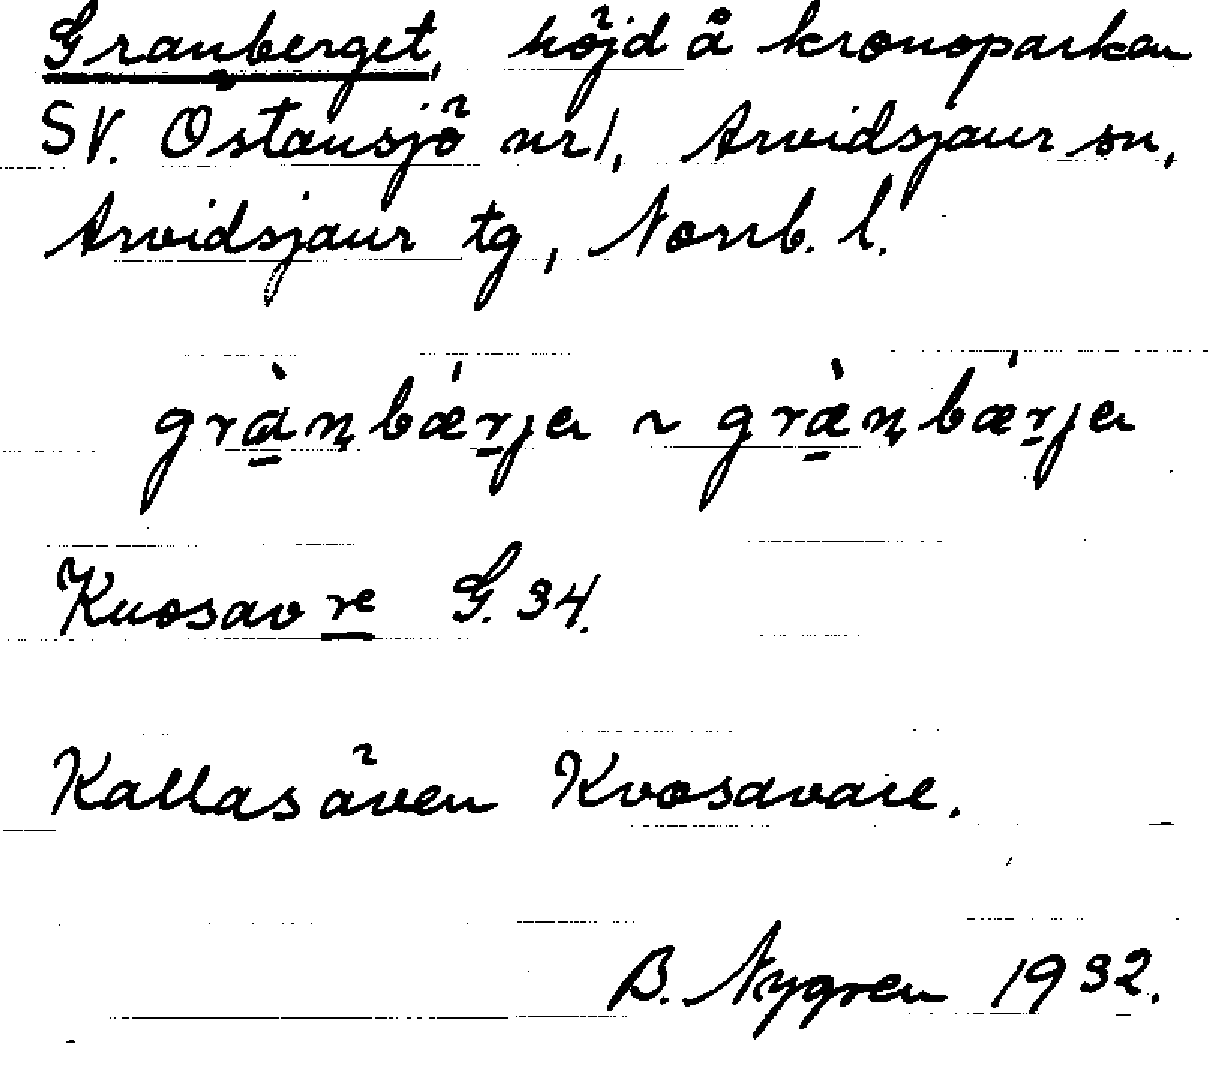 Granberget, höjd å kronoparken
SV. Östansjö nr 1, Arvidsjaur sn,
Arvidsjaur tg, Norrb. l.
grànbǽrjɐ ~ græ̀nbǽrjɐ
Kuosavre G. 34.
Kallas även Kvosavare.
B. Nygren 1932.